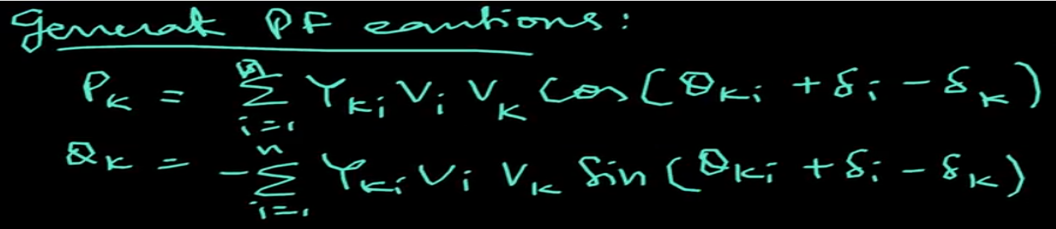 General PF eqautions:
P_K = Σ_{i=1}^{n} Y_{Ki} V_i V_K Cos(θ_{Ki} + δ_i - δ_K)
Q_K = -Σ_{i=1}^{n} Y_{Ki} V_i V_K Sin(θ_{Ki} + δ_i - δ_K)